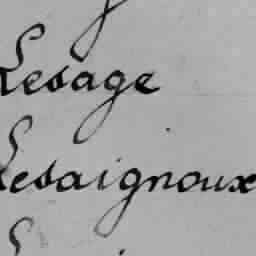 Lesage
Lesaignoux